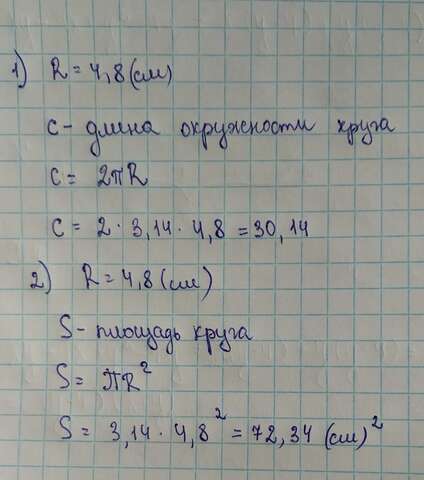 1) R = 4,8 (см)
C - длина окружности круга
C = 2πR
C = 2 · 3,14 · 4,8 = 30,14
2) R = 4,8 (см)
S - площадь круга
S = πR²
S = 3,14 · 4,8² = 72,34 (см)²